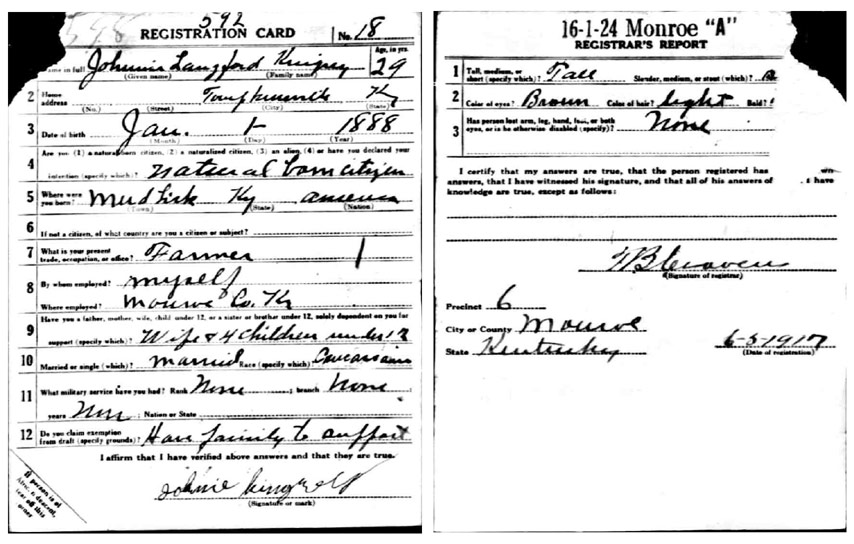 592
REGISTRATION CARD No. 18
Name in full Johnnie Langford Kingrey Age, in yrs. 29
(Given name) (Family name)
2 Home address Tompkinsville Ky
(No.) (Street) (City) (State)
3 Date of birth Jan. 1 1888
(Month) (Day) (Year)
4 Are you (1) a natural born citizen, (2) a naturalized citizen, (3) an alien, (4) or have you declared your
intention (specify which)? natural born citizen
5 Where were you born? Mud Lick Ky america
(Town) (State) (Nation)
6 If not a citizen, of what country are you a citizen or subject?
7 What is your present trade, occupation, or office? Farmer 1
8 By whom employed? myself
Where employed? Monroe Co. Ky
9 Have you a father, mother, wife, child under 12, or a sister or brother under 12, solely dependent on you for
support (specify which)? Wife & 4 children under 12
10 Married or single (which)? married Race (specify which)? Caucasian
11 What military service have you had? Rank None ; branch None
years ; Nation or State
12 Do you claim exemption from draft (specify grounds)? Have family to support
I affirm that I have verified above answers and that they are true.
Johnie
(Signature or mark)
If person is of
African descent,
tear off this
corner
16-1-24 Monroe "A"
REGISTRAR'S REPORT
1 Tall, medium, or short (specify which)? Tall Slender, medium, or stout (which)?
2 Color of eyes? Brown Color of hair? light Bald?
3 Has person lost arm, leg, hand, foot, or both
eyes, or is he otherwise disabled (specify)? None
I certify that my answers are true, that the person registered has
answers, that I have witnessed his signature, and that all of his answers of have
knowledge are true, except as follows:
(Signature of registrar)
Precinct 6
City or County Monroe
State Kentucky 6-5-1917
(Date of registration)